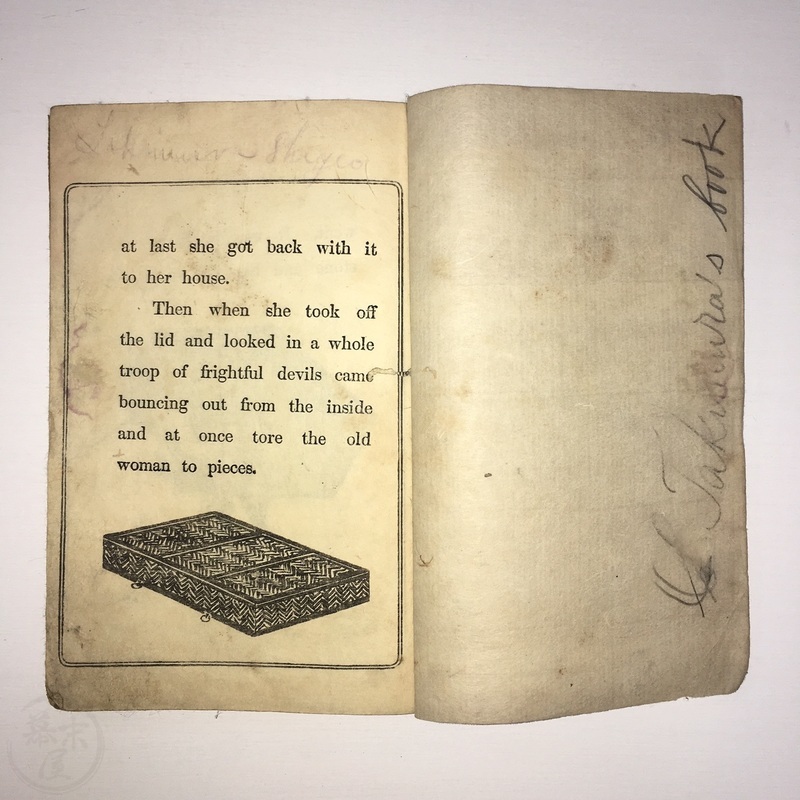 at last she got back with it
to her house.
Then when she took off
the lid and looked in a whole
troop of frightful devils came
bouncing out from the inside
and at once tore the old
woman to pieces.
Takimura's book